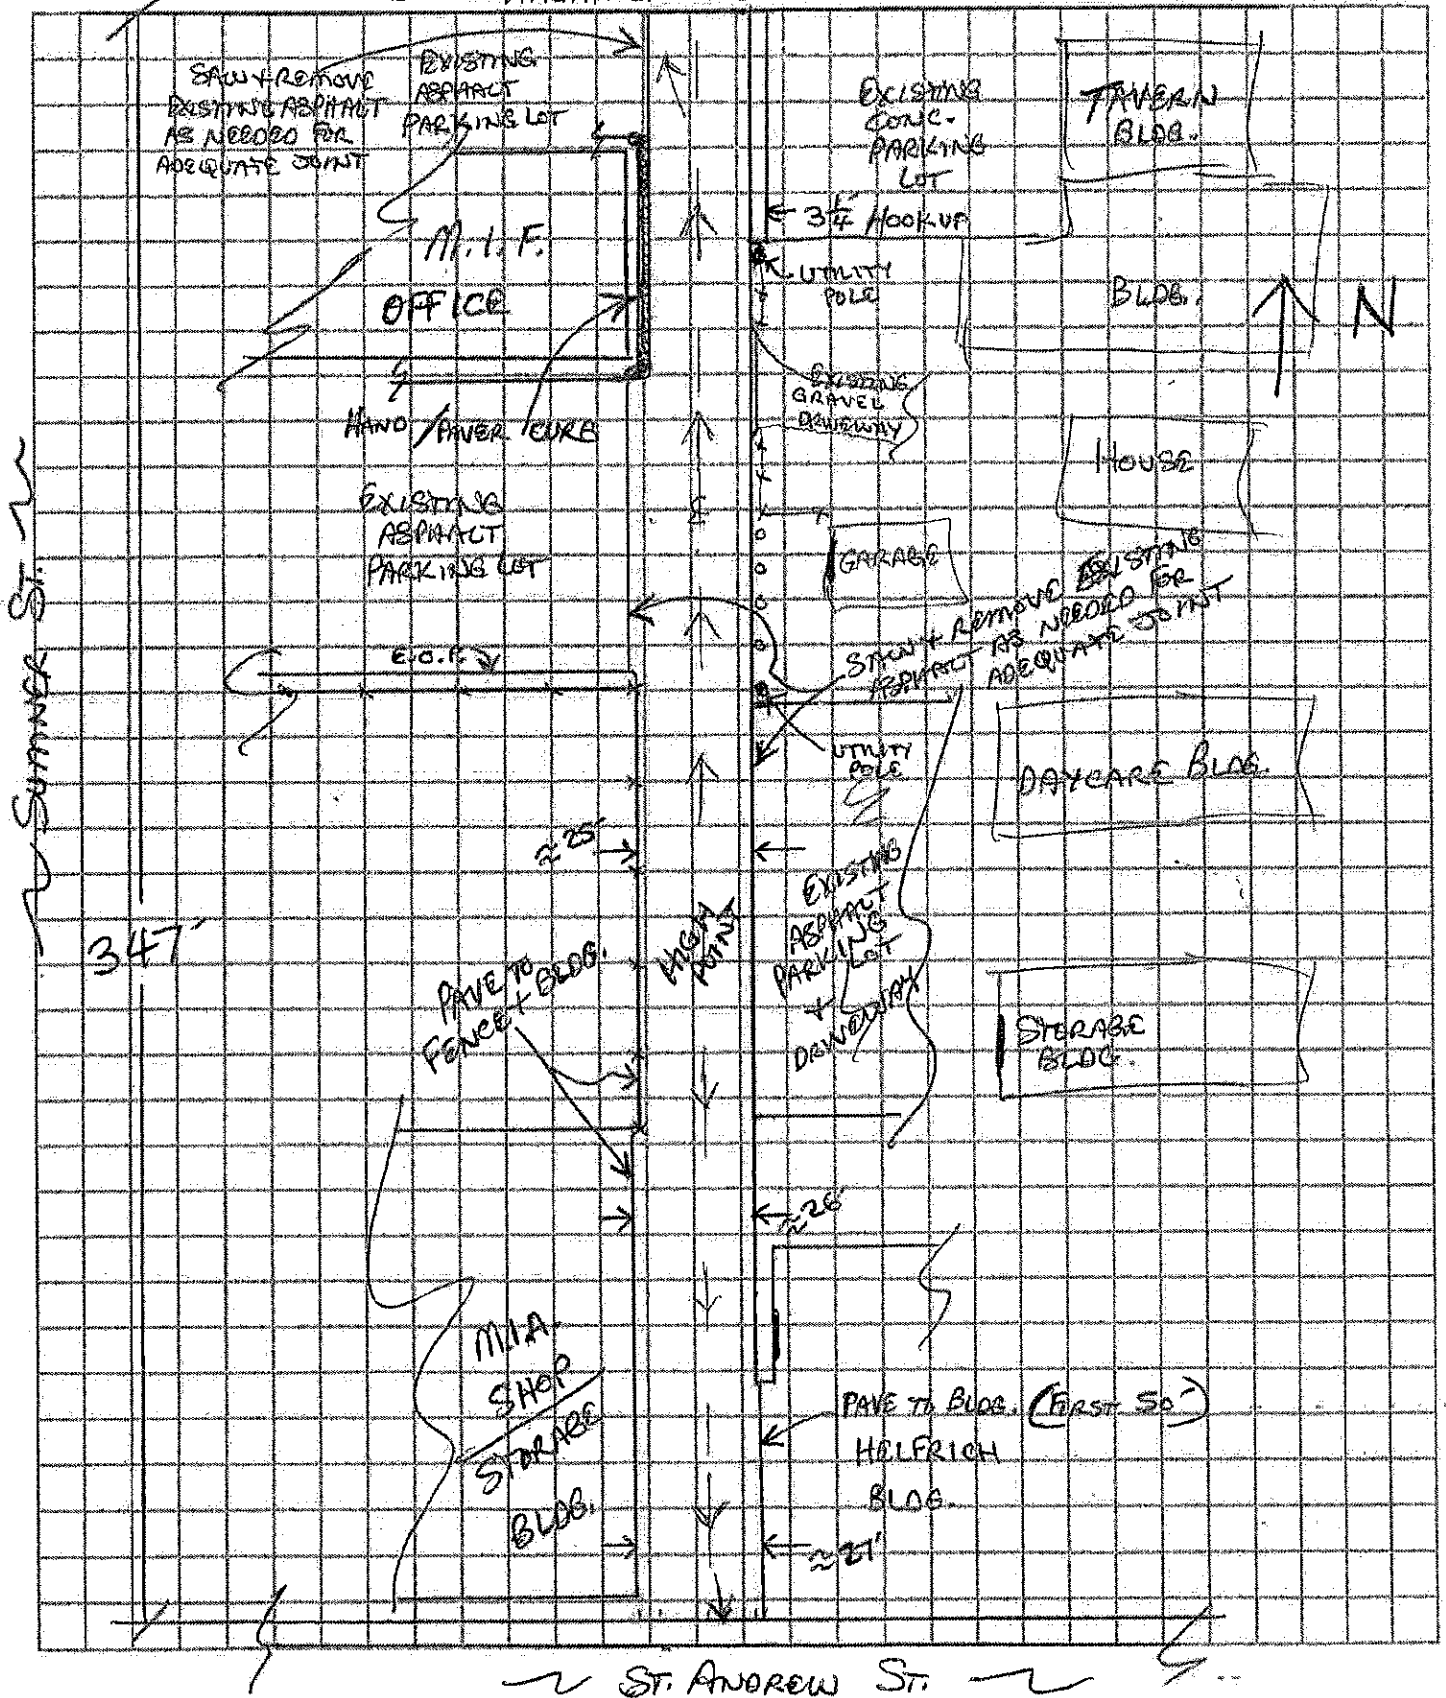 SAW & REMOVE
EXISTING ASPHALT
AS NEEDED FOR
ADEQUATE JOINT
EXISTING
ASPHALT
PARKING LOT
EXISTING
CONC.
PARKING
LOT
TAVERN
BLDG.
M.I.F.
OFFICE
3 1/4" HOOKUP
UTILITY
POLE
BLDG.
N
HAND/PAVER CURB
EXISTING
GRAVEL
DRIVEWAY
HOUSE
EXISTING
ASPHALT
PARKING LOT
GARAGE
SAW & REMOVE EXISTING
ASPHALT AS NEEDED FOR
ADEQUATE JOINT
E.O.P.
UTILITY
POLE
DAYCARE BLDG.
SUMNER ST.
≈ 25'
347'
PAVE TO
FENCE + BLDG.
HIGH
POINT
EXISTING
ASPHALT
PARKING
LOT
+
DRIVEWAY
STORAGE
BLDG.
≈ 26'
M.I.A.
SHOP
STORAGE
BLDG.
PAVE TO BLDG. (FIRST 50')
HELFRICH
BLDG.
≈ 27'
ST. ANDREW ST.